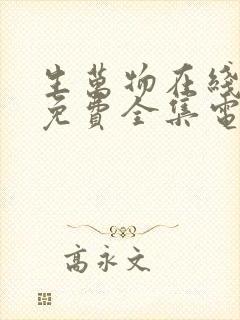 生萬物在綫
免費全集電
高永文